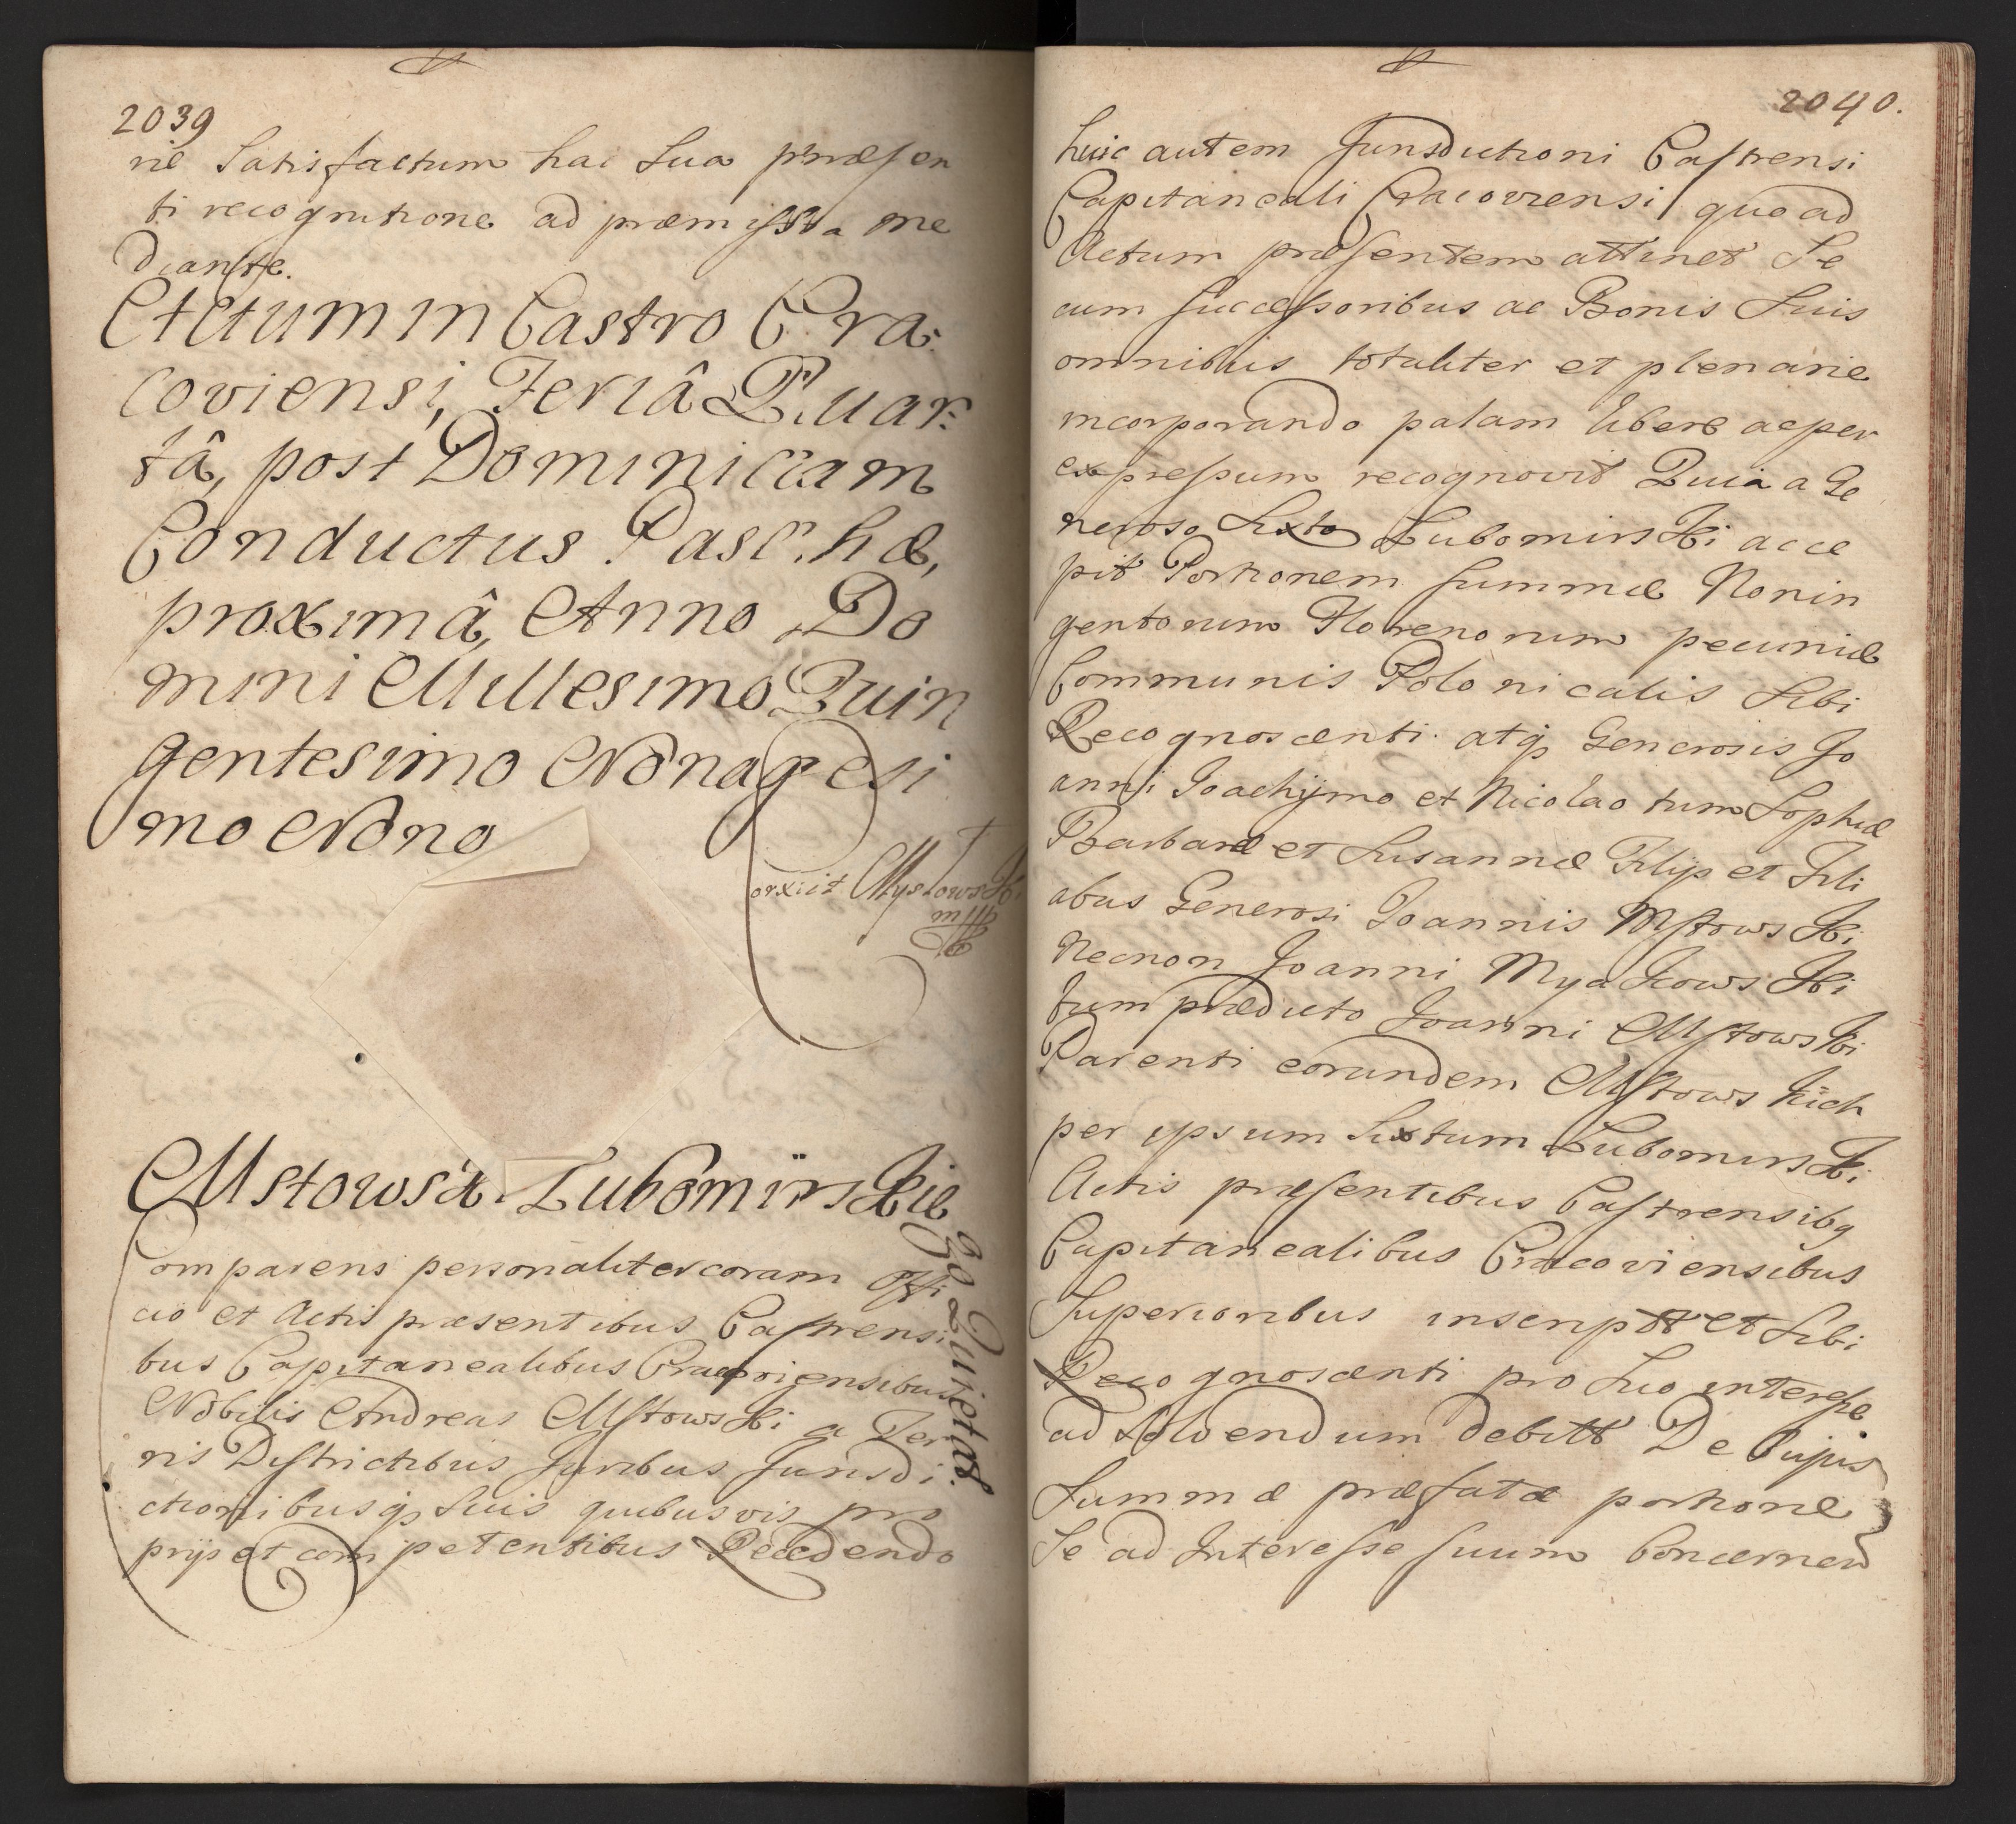 2039
rie Satisfactum hac Sua præsen
ti recognitione ad præmissa me
diante.
Actum in Castro Cra:
coviensi, Feriâ Quar=
tâ, post Dominicam
Conductus Paschæ,
proximâ, Anno Do
mini Millesimo Quin
gentesimo Nonagesi
mo Nono
Mystowski
mpp
Mstowski Lubomirskie
go Quietat.
Comparens personaliter coram Offi
cio et Actis præsentibus Castrensi
bus Capitanealibus Cracoviensibus
Nobilis Andreas Mstowski a Ter
ris Districtibus Juribus Jurisdi
ctionibusq; Suis quibusvis pro
prijs et competentibus Recedendo
2040.
huic autem Jurisdictioni Castrensi
Capitaneali Cracoviensi quo ad
Actum præsentem attinet Se
cum successoribus ac Bonis Suis
omnibus totaliter et plenarie
incorporando palam libere ac per
expressum recognovit Quia a Ge
neroso Sixto Lubomirski acce
pit Portionem summæ Nonin
gentorum Florenorum pecuniæ
Communis Polonicalis Sibi
Recognoscenti atq; Generosis Jo
anni Joachijmo et Nicolao tum Sophiæ
Barbaræ et Susannæ Filijs et Fili
abus Generosi Joannis Mstowski
Necnon Joanni Myakowski
tum prædicto Joanni Mstowski
Parenti eorundem Mstowskich
per ipsum Sixtum Lubomirski
Actis præsentibus Castrensibq
Capitanealibus Cracoviensibus
Superioribus inscript et Sibi
Recognoscenti pro Suo interesse
ad Solvendum debitt De Cujus
Summæ præfatæ portione
Se ad Interesse suum Concernen